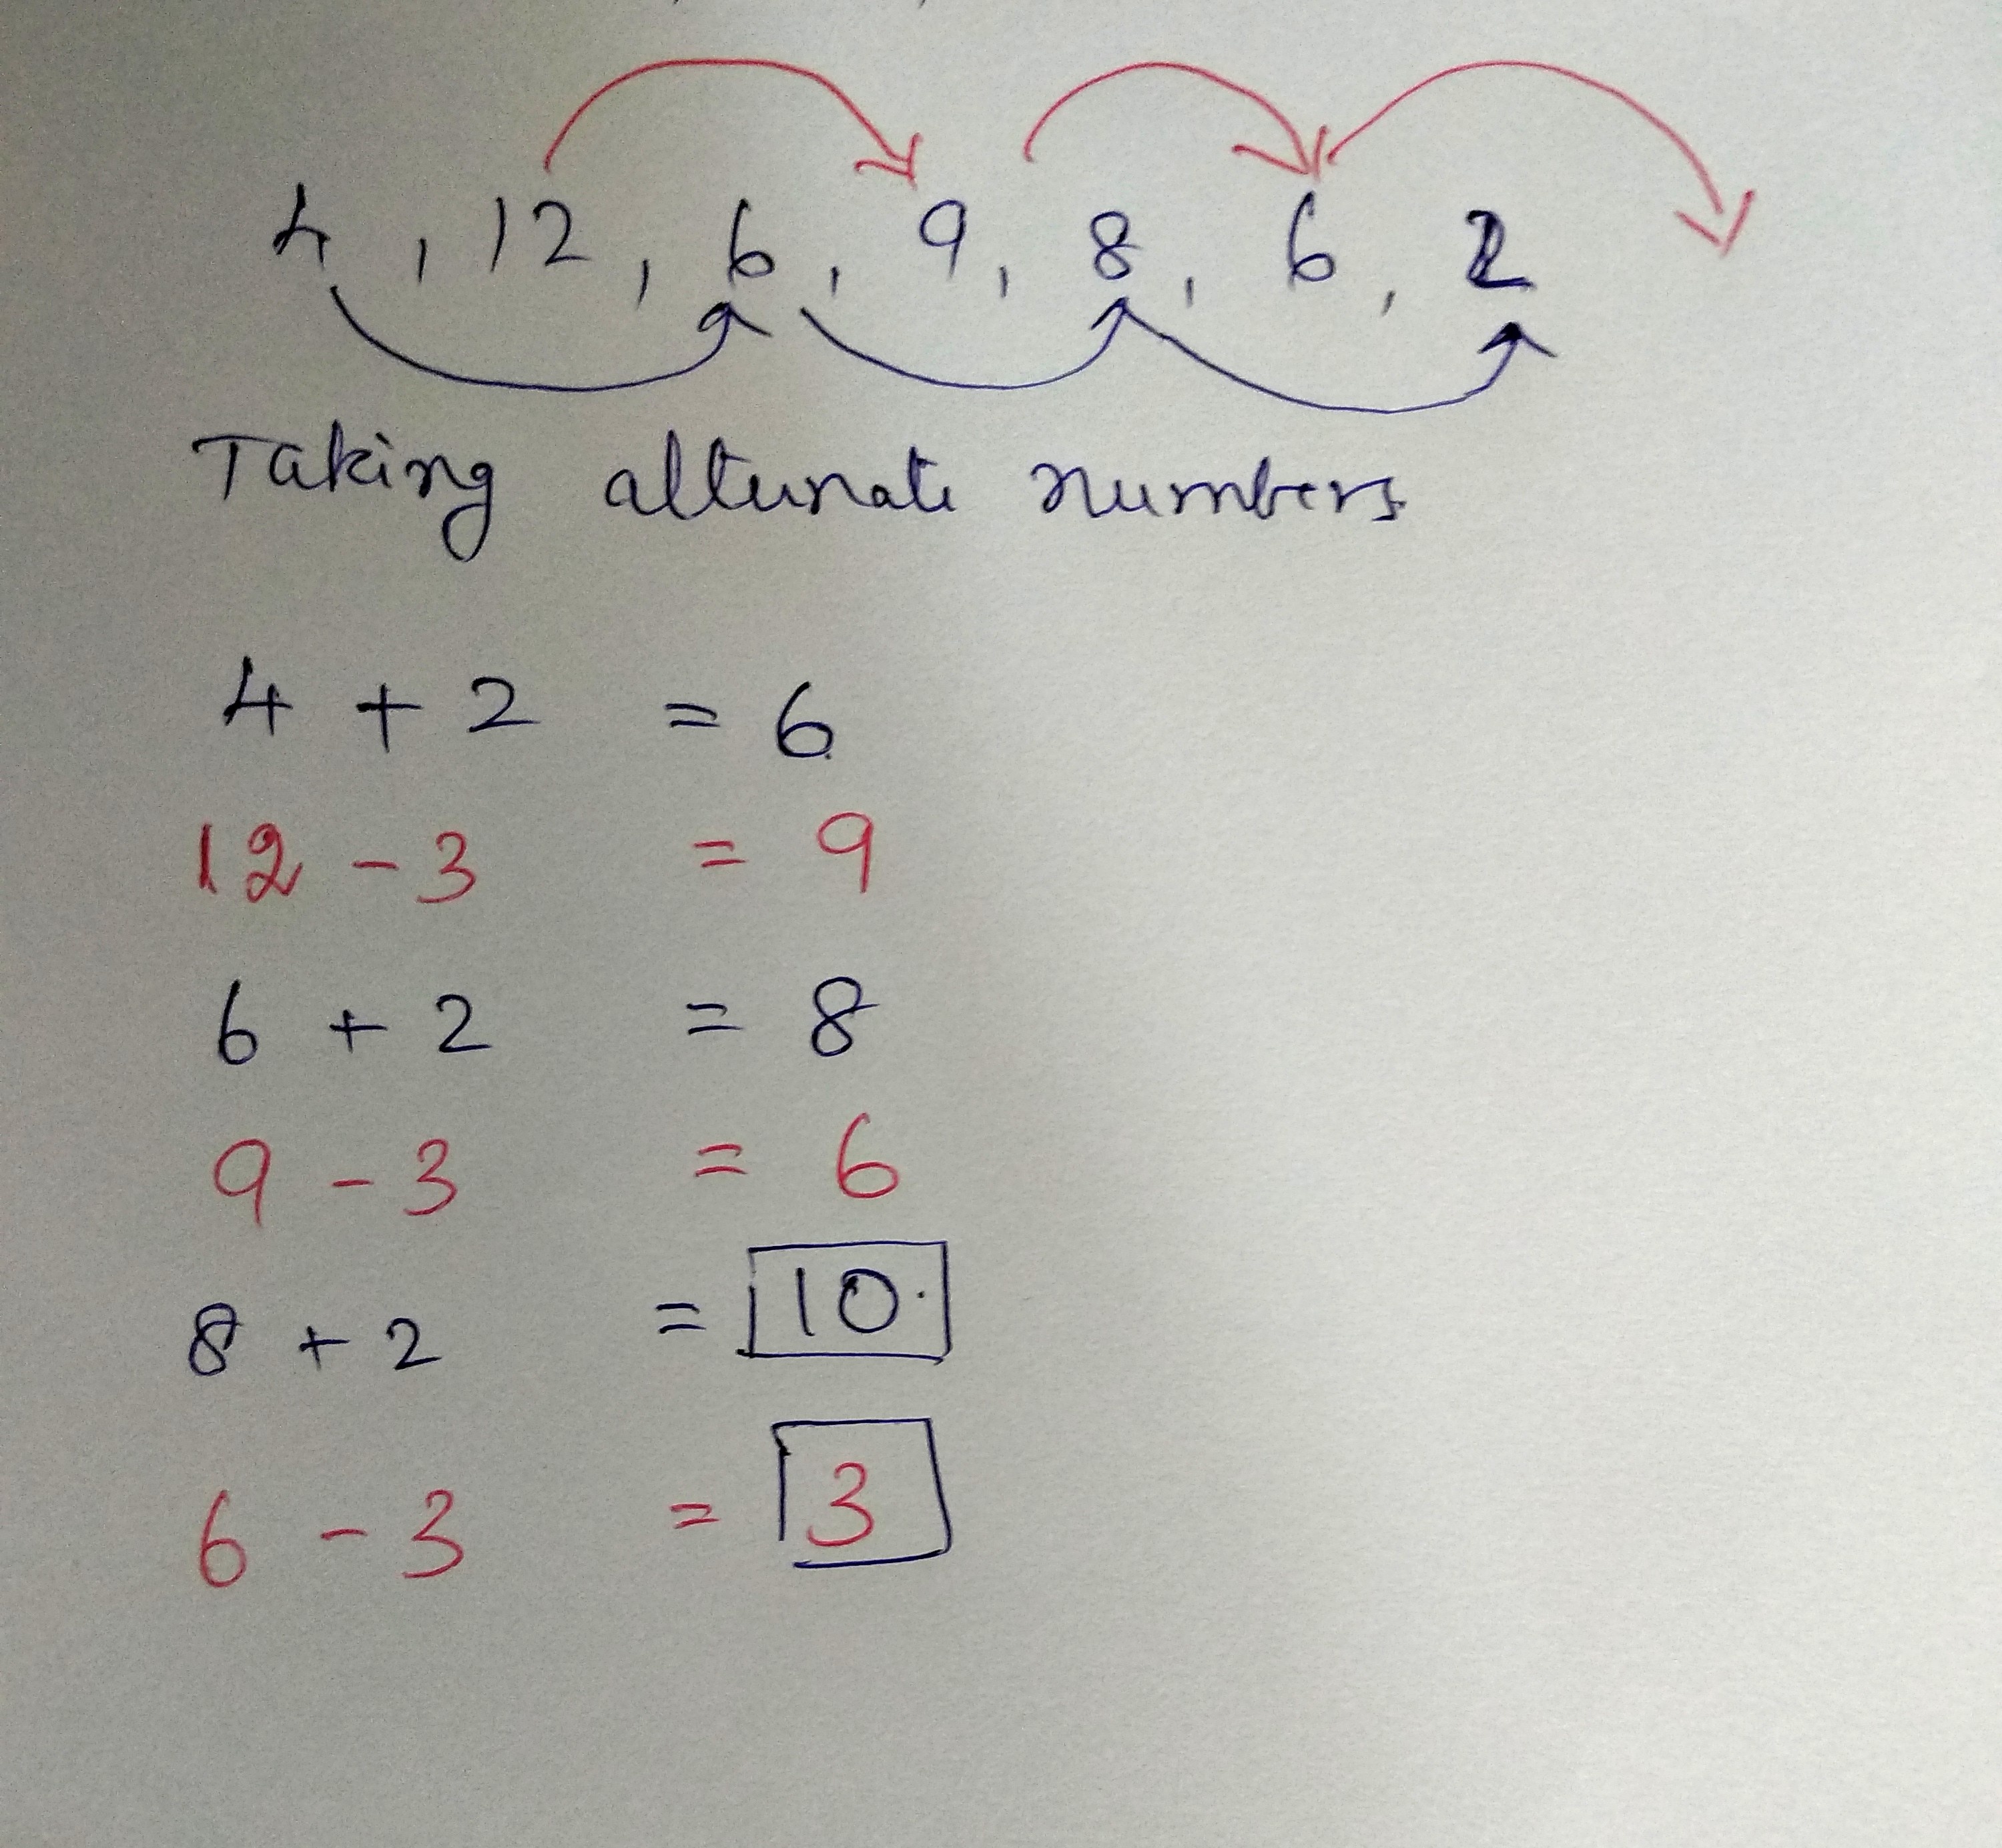 4, 12, 6, 9, 8, 6, 2
Taking alternate numbers
4 + 2 = 6
12 - 3 = 9
6 + 2 = 8
9 - 3 = 6
8 + 2 = 10.
6 - 3 = 3